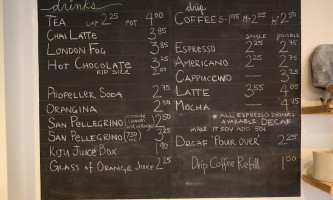 drinks
TEA CUP 2.25 POT 4.00
CHAI LATTE 3.85
LONDON FOG 3.85
HOT CHOCOLATE 3.25
KID SIZE
PROPELLER SODA 2.75
ORANGINA 2.50
SAN PELLEGRINO
SAN PELLEGRINO 3.25
KIJU JUICE BOX 1.90
GLASS OF ORANGE JUICE 2.25
drip
COFFEE S-1.95 M-2 2.50
SINGLE DOUBLE
ESPRESSO 2.25 2.75
AMERICANO 2.25 2.75
CAPPUCCINO 3.25
LATTE 3.55 4.05
MOCHA 4.75
* ALL ESPRESSO DRINKS
AVAILABLE DECAF
MAKE IT SOY ADD 50¢
DECAF "POUR OVER" 2.25
Drip Coffee Refill 1.00